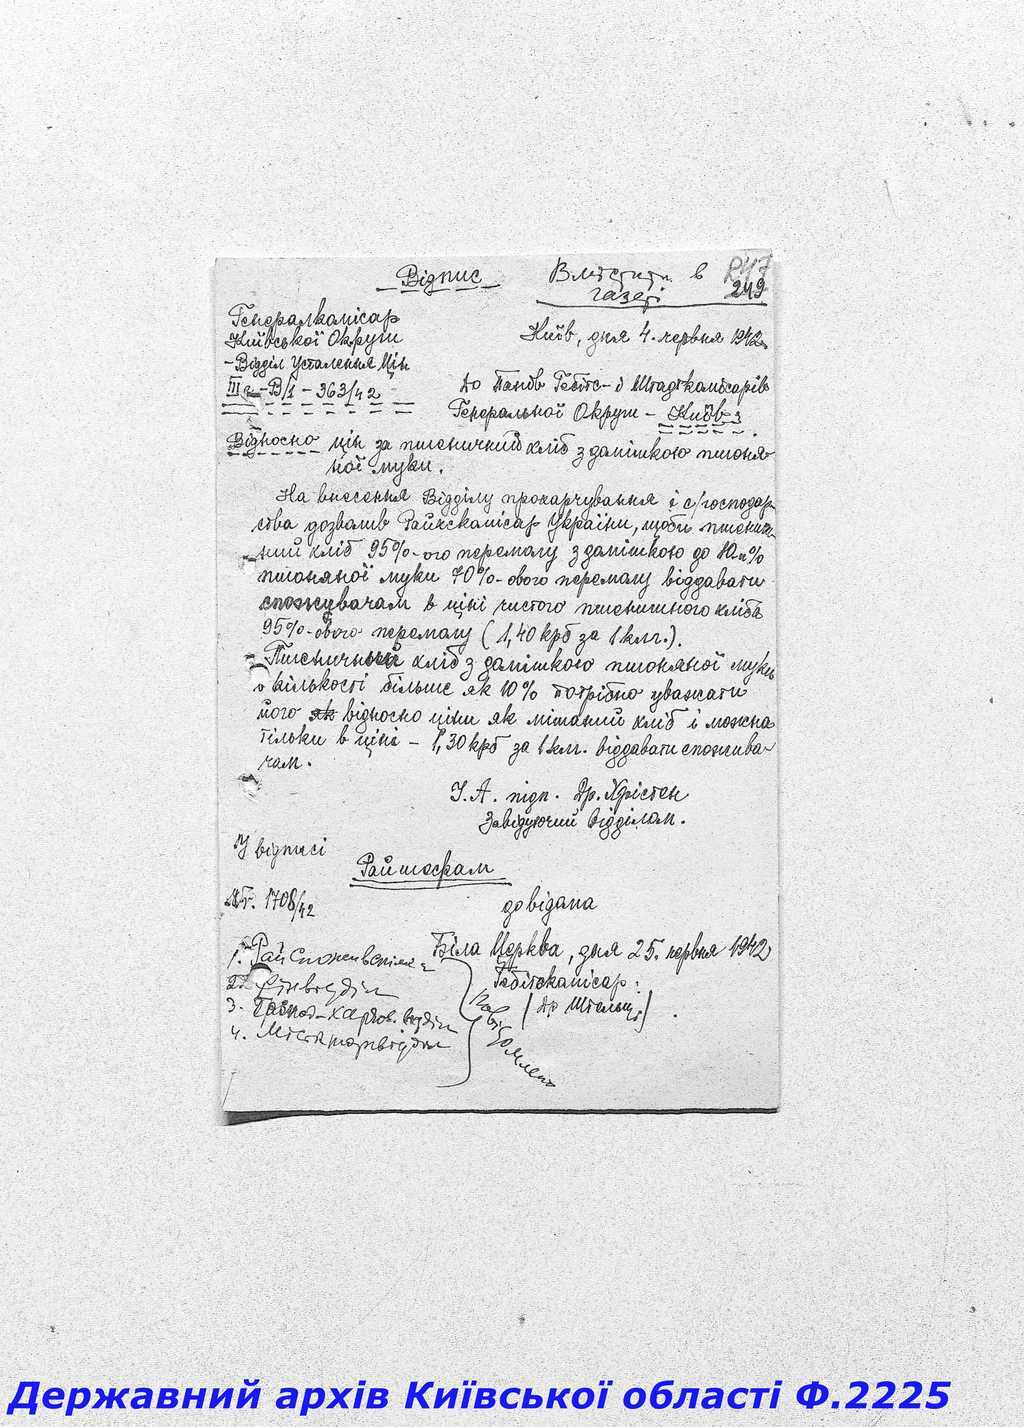 Відпис
Вмістити в
газеті
247
249
Генералкомісар
Київської Округи
Київ, дня 4. червня 1942.
-Відділ Усталення Цін
III -В/1 - 363/42
до Панів Гебітс- і Штадткомісарів
Генеральної Округи - Київ
Відносно цін за пшеничний хліб з домішкою пшоня-
ної муки.
На внесення Відділу прохарчування і с/господар-
ства дозволив Райхскомісар України, щоби пшенич-
ний хліб 95%-ого перемолу з домішкою до 10%
пшоняної муки 70%-ового перемолу віддавати
споживачам в ціні чистого пшеничного хліба
95%-ового перемолу (1,40 крб за 1 клг.).
Пшеничний хліб з домішкою пшоняної муки
о кількості більше як 10% потрібно уважати
його як відносно ціни як мішаний хліб і можна
тільки в ціні - 1,30 крб за 1 клг. віддавати спожива-
чам.
І. А. підп. Др. Хрістен
Завідуючий Відділом.
У відписі
Райшефам
1708/42
до відома
Біла Церква, дня 25. червня 1942
Гебітскомісар:
(др Штельцер)
1. Райспоживспілка
2. Фінвідділ
3. харчов. відділ
4. Міськторгвідділ
Повідомлено
Державний архів Київської області Ф.2225